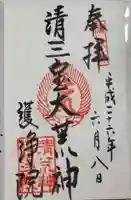 奉拝
平成二十六年
六月八日
清三宝大荒神
護浄院